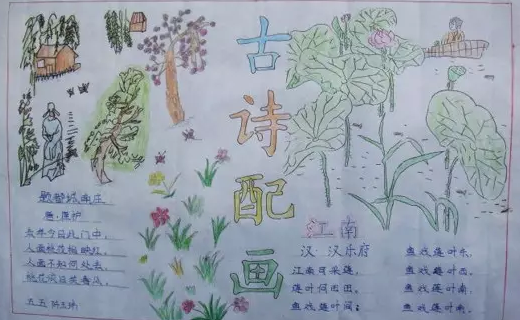 古诗配画
题都城南庄
唐·崔护
去年今日此门中,
人面桃花相映红。
人面不知何处去,
桃花依旧笑春风。
五五
江南
汉·汉乐府
江南可采莲,
莲叶何田田。
鱼戏莲叶间;
鱼戏莲叶东,
鱼戏莲叶西,
鱼戏莲叶南,
鱼戏莲叶北。